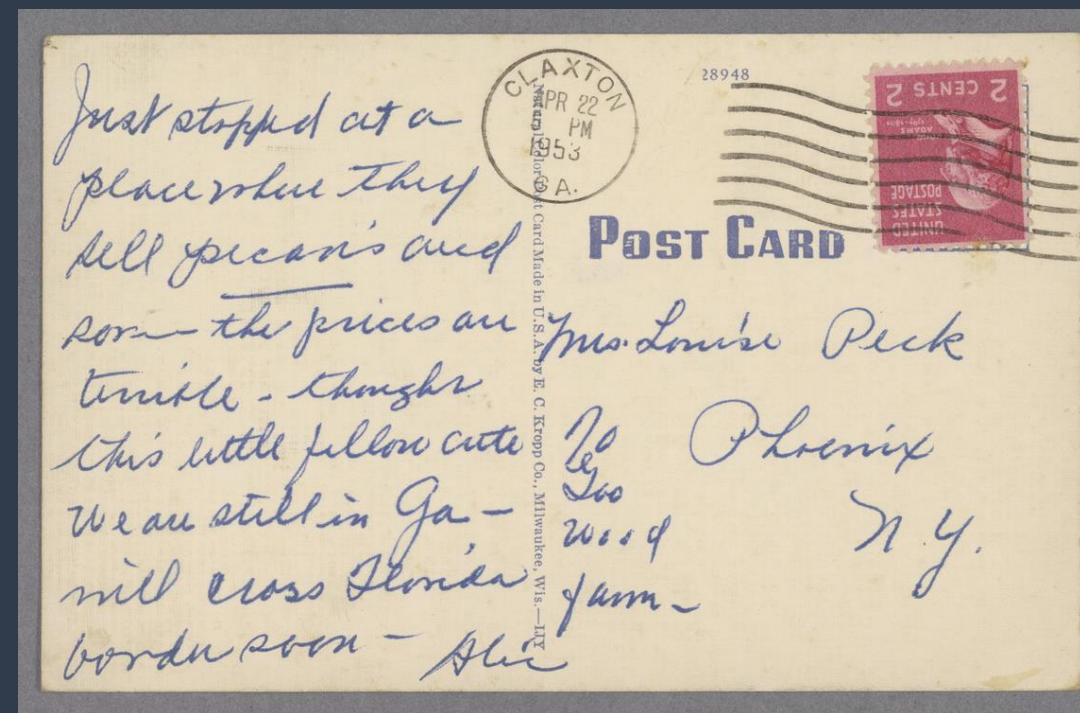 Just stopped at a
place where they
sell pecans and
some the prices are
terrible - thought
this little fellow cute
We are still in Ga -
will cross Florida
border soon - Alic
CLAXTON
APR 22
PM
1953
GA.
28948
2 CENTS 2
ADAMS
UNITED
STATES
POSTAGE
POST CARD
Natural Color Post Card Made in U.S.A. by E. C. Kropp Co., Milwaukee, Wis.—IJY
Mrs. Louise Peck
Phoenix
N.Y.
Wood
farm -